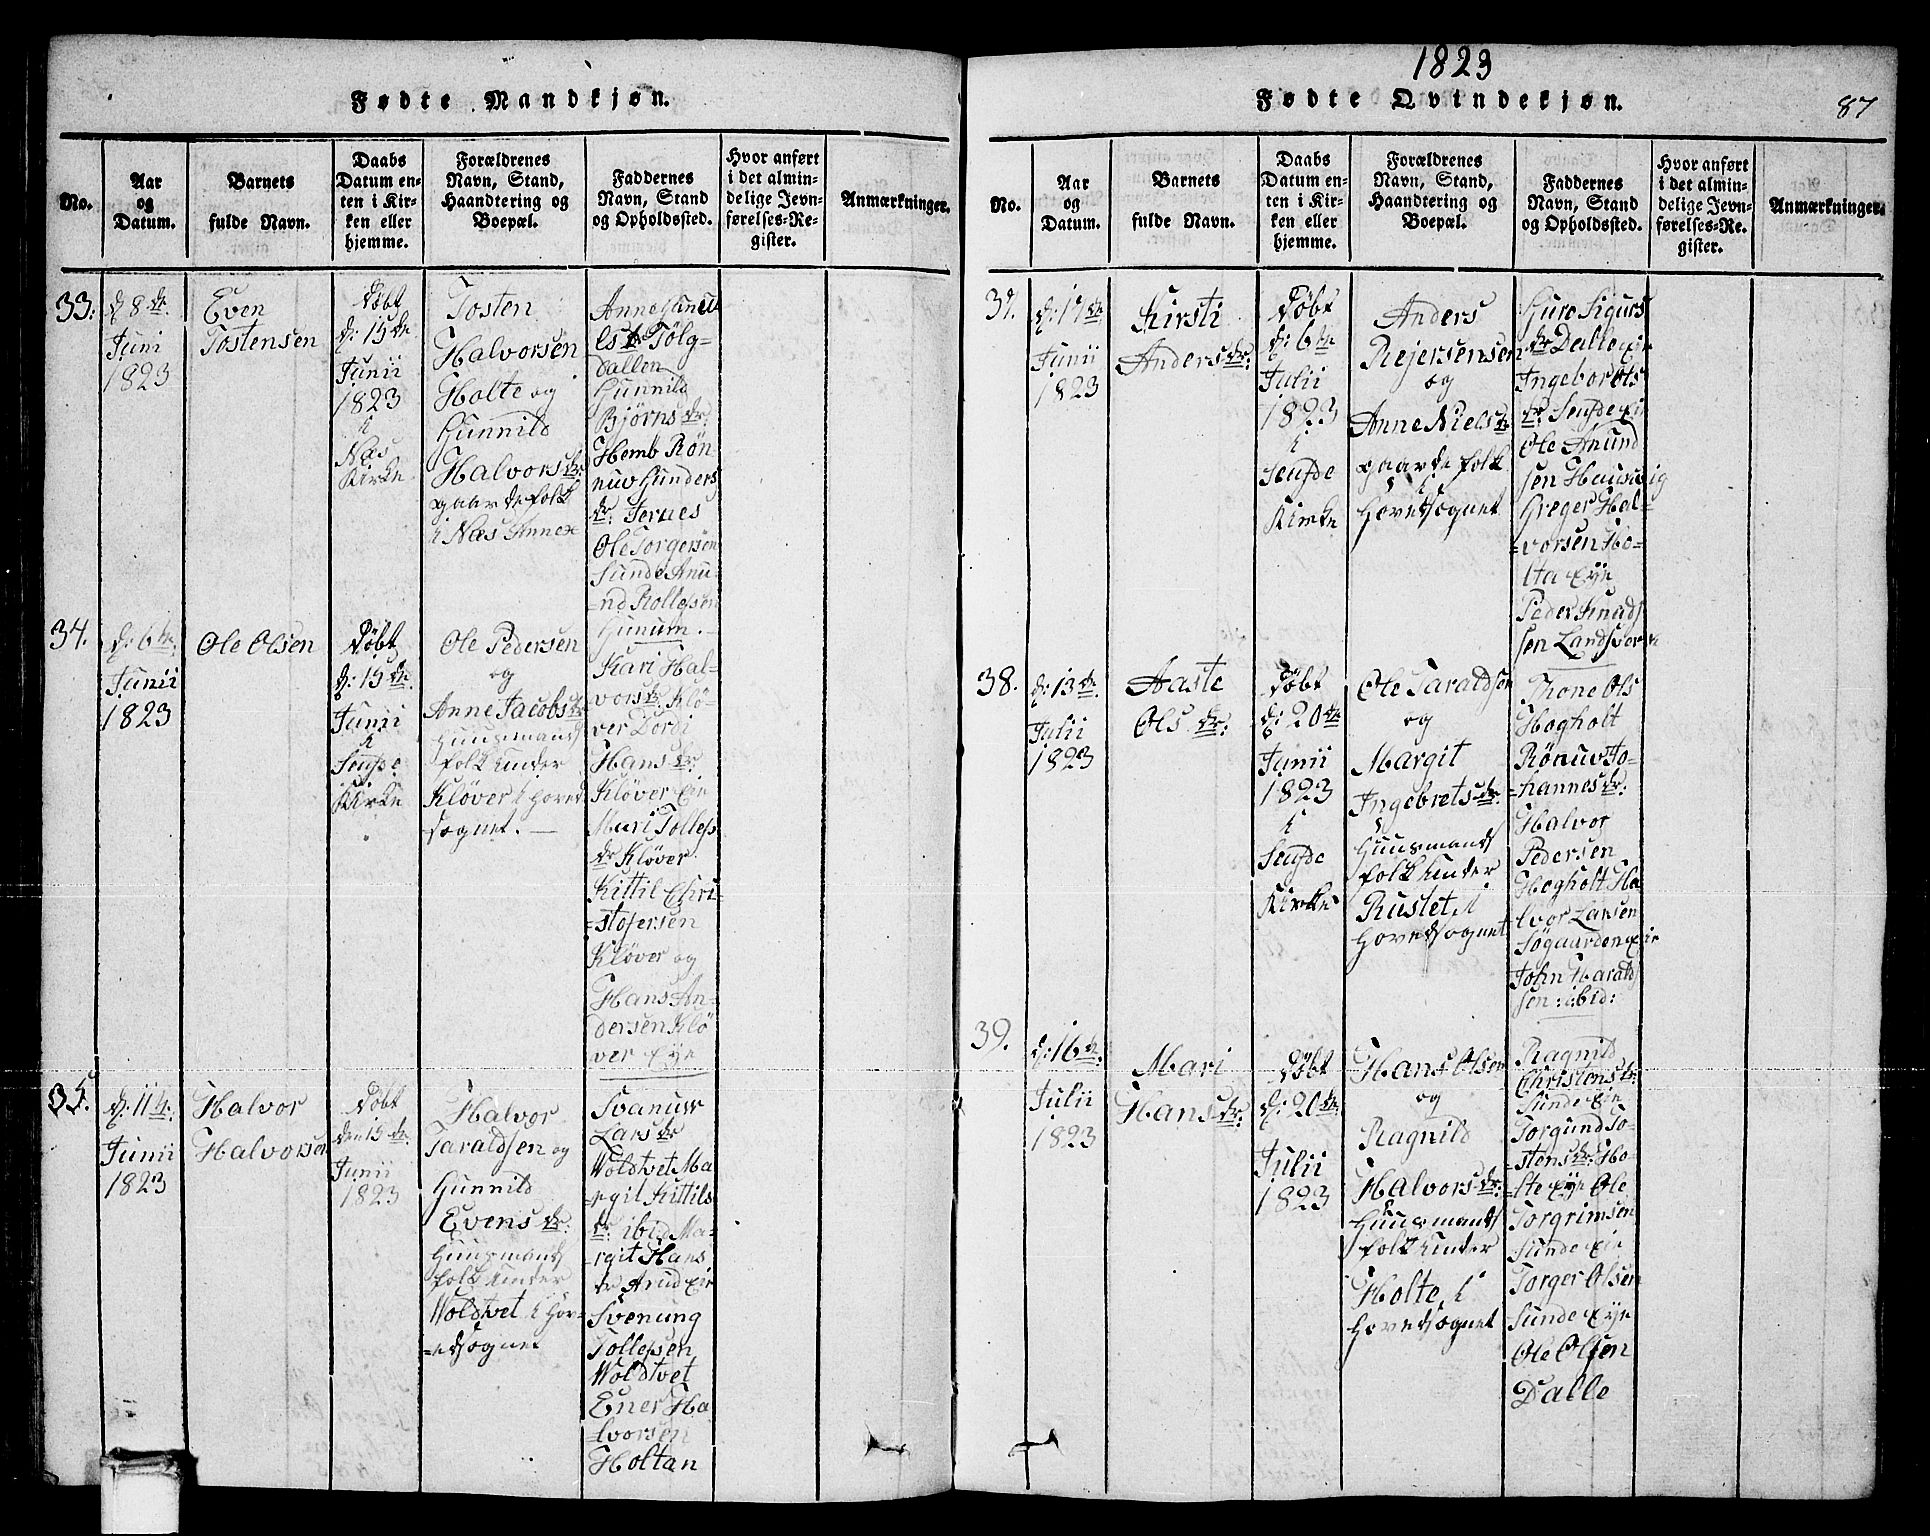 1823
87
Fødte Mandkjøn.
No.
Aar
og
Datum.
Barnets
fulde Navn.
Daabs
Datum en-
ten i Kir-
ken eller
hjemme.
Forældrenes
Navn, Stand,
Haandtering og
Boepæl.
Faddernes
Navn, Stand
og Opholdssted.
Hvor anført
i det almin-
delige Jevn-
førelses-Re-
gister.
Anmærkninger.
33.
d: 8de
Juni
1823
Even
Tostensen
Døbt
d: 15de
Junii
1823
i
Næs
Kirke
Tosten
Halvorsen
Holte og
Gunnild
Halvorsdr
gaardefolk
i Næs Annex
Bjørnsdr:
Hemb Røn
nuv Gunders
dr: Jernes
Ole Torgersen
Sunde Anu-
=nd Rollefsen
Gunum.
34.
d: 6te
Junii
1823
Ole Olsen
Døbt
d: 15de
Junii
i
Seufde
Kirke
Ole Pedersen
og
Anne Jacobsdr
Huusmands
folk under
Kløver i Hoved
sognet.
Kari Hal-
vorsdr: Klö-
ver Dordi
Hansdr:
Kløver Eie
Mari Tollefs
dr Kløver
Kittil Chri-
=stofersen
Kløver og
Hans An-
dersen Klö
ver Eye
35.
d: 11te
Junii
1823
Halvor
Halvorsen
Døbt
den 15de
Junii
1823
Halvor
Taraldsen og
Gunnild
Evensdr:
Huusmands
folk under
Woldtvet i Hov-
=edsognet
Svanuv
Larsdr
Woldtvet Ma
=rgit Kittils
dr: ibid Ma-
=rgit Hans
dr Arud Eie
Svenung
Tollefsen
Woldtvet
Ener Ha
=lvorsen
Holtan
Fødte Qvindekjøn.
No.
Aar
og
Datum.
Barnets
fulde Navn.
Daabs
Datum en-
ten i Kir-
ken eller
hjemme.
Forældrenes
Navn, Stand,
Haandtering og
Boepæl.
Faddernes
Navn, Stand
og Opholdssted.
Hvor anført
i det almin-
delige Jevn-
førelses-Re-
gister.
Anmærkninger.
37.
d: 17de
Junii
1823
Kirsti
Andersdr:
Døbt
d: 6te
Julii
1823
i
Seufde
Kirke
Anders
Rejersensen
og
Anne Nielsdr
gaardefolk
i
Hovedsognet
Guro Sigurs
dr Dalle Eie
Ingebor Ols
dr: Seufde Eie
Ole Anund
sen Hauswig
Greger Hal-
=vorsen Ho-
lta Eye
Peder Knuds
sen Landsverk
38.
d: 13de
Julii
1823
Aaste
Ols dr:
Døbt
d: 20de
Junii
1823
i
Seufde
Kirke
Ole Taraldsen
og
Margit
Ingebretsdr:
Huusmands
folk under
Rustet i
Hovedsognet
Thone Ols
Hogholt
Rønuv Jo-
=hannesdr:
Halvor
Pedersen
Hogholt Ha
lvor Larsen
Søgaarden Eie
John Harald
sen: ibid:
39.
d: 16de
Julii
1823
Mari
Hansdr:
Døbt
d: 20de
Julii
1823
Hans Olsen
og
Ragnild
Halvorsdr:
Huusmands
folk under
Holte, i
Hovedsognet
Ragnild
Christensdr:
Sunde Eie
Torgund To-
=stensdr: Ho-
=lte Eye Ole
Torgrimsen
Sunde Eie
Torger Olsen
Sunde Eye
Ole Olsen
Dalle